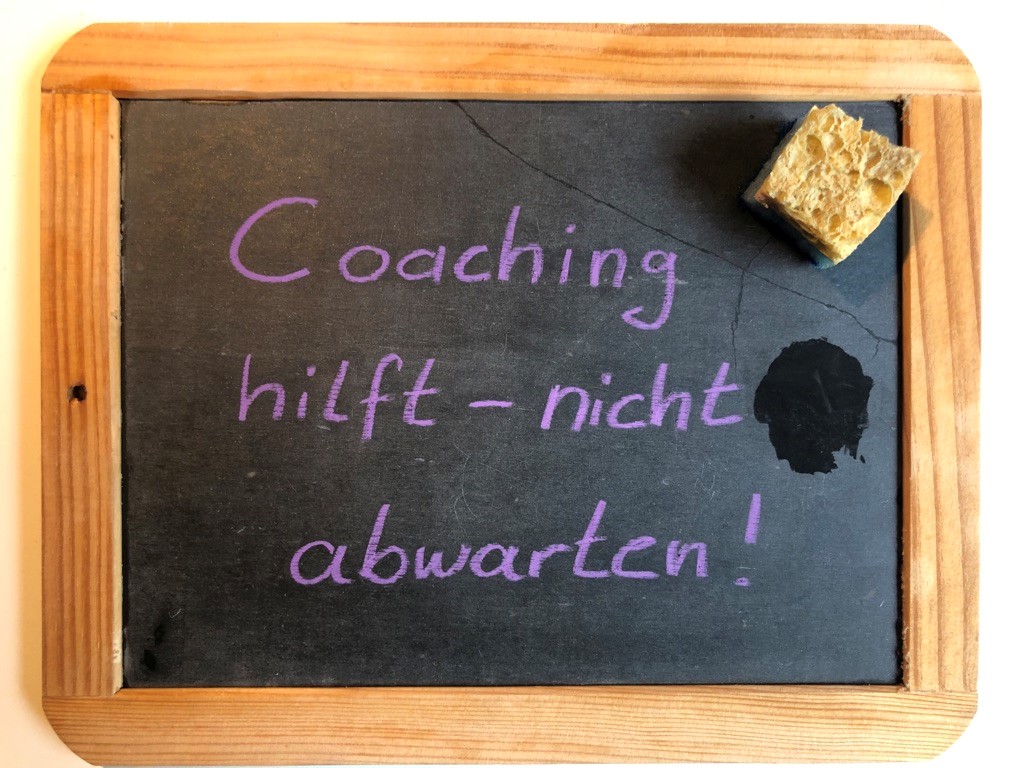 Coaching
hilft - nicht
abwarten!